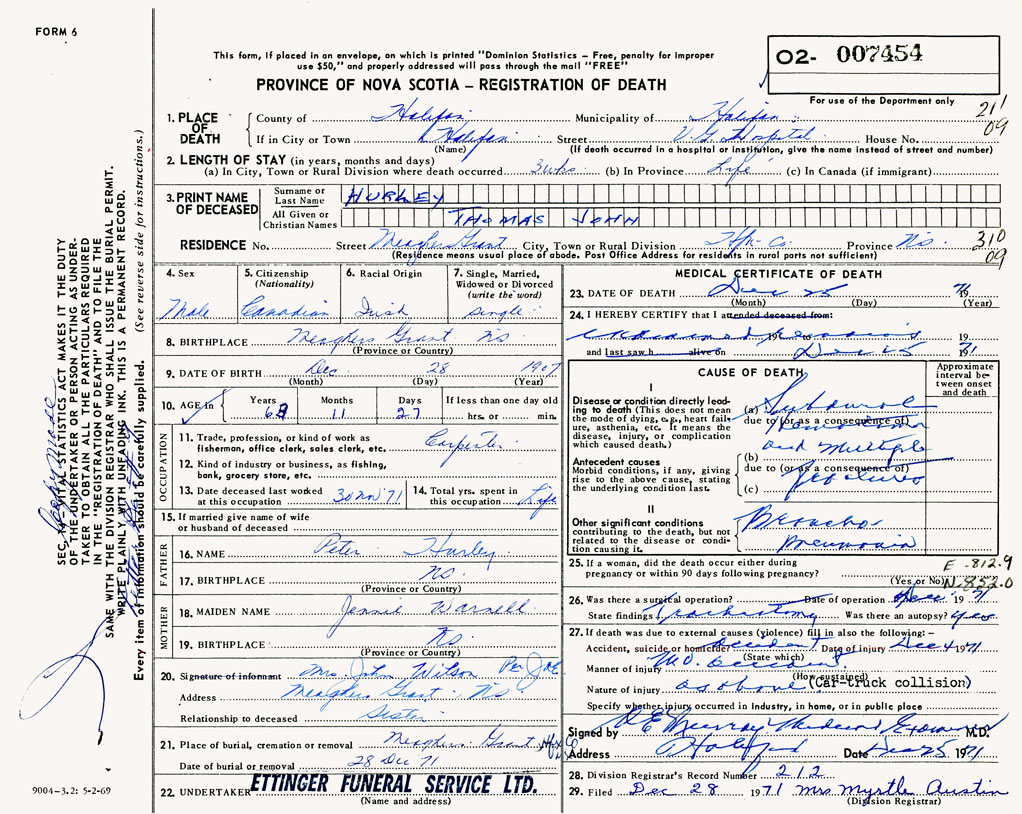 FORM 6
This form, if placed in an envelope, on which is printed "Dominion Statistics – Free, penalty for improper
use $50," and properly addressed will pass through the mail "FREE"
PROVINCE OF NOVA SCOTIA – REGISTRATION OF DEATH
O2- 007454
For use of the Department only
211
09
1. PLACE OF DEATH
County of Halifax Municipality of Halifax
If in City or Town Halifax Street V.G. Hospital House No.
(Name) (If death occurred in a hospital or institution, give the name instead of street and number)
2. LENGTH OF STAY (in years, months and days)
(a) In City, Town or Rural Division where death occurred 3 wks. (b) In Province Life (c) In Canada (if immigrant)
3. PRINT NAME OF DECEASED
Surname or Last Name HURLEY
All Given or Christian Names THOMAS JOHN
RESIDENCE No. Street Meaghers Grant City, Town or Rural Division Hfx Co. Province N.S.
310
09
(Residence means usual place of abode. Post Office Address for residents in rural parts not sufficient)
4. Sex
Male
5. Citizenship (Nationality)
Canadian
6. Racial Origin
Irish
7. Single, Married, Widowed or Divorced (write the word)
Single
8. BIRTHPLACE Meaghers Grant N.S.
(Province or Country)
9. DATE OF BIRTH Dec 28 1907
(Month) (Day) (Year)
10. AGE in Years 63 Months 11 Days 27 If less than one day old hrs. or min.
OCCUPATION
11. Trade, profession, or kind of work as fisherman, office clerk, sales clerk, etc. Carpenter
12. Kind of industry or business, as fishing, bank, grocery store, etc.
13. Date deceased last worked at this occupation 30 Nov 71
14. Total yrs. spent in this occupation Life
15. If married give name of wife or husband of deceased
FATHER
16. NAME Peter Hurley
17. BIRTHPLACE N.S.
(Province or Country)
MOTHER
18. MAIDEN NAME Jennie Warnell
19. BIRTHPLACE N.S.
(Province or Country)
20. Signature of informant Mrs. John Wilson Per
Address Meaghers Grant N.S.
Relationship to deceased Sister
21. Place of burial, cremation or removal Meaghers Grant Hfx Co
Date of burial or removal 28 Dec 71
22. UNDERTAKER ETTINGER FUNERAL SERVICE LTD.
(Name and address)
MEDICAL CERTIFICATE OF DEATH
23. DATE OF DEATH Dec 25 1971
(Month) (Day) (Year)
24. I HEREBY CERTIFY that I attended deceased from:
19 to 19
and last saw h alive on Dec 25 1971
CAUSE OF DEATH
Approximate interval between onset and death
I
Disease or condition directly leading to death (This does not mean the mode of dying, e.g., heart failure, asthenia, etc. It means the disease, injury, or complication which caused death.)
(a) Subdural
due to (or as a consequence of)
and Multiple
Antecedent causes
Morbid conditions, if any, giving rise to the above cause, stating the underlying condition last.
(b)
due to (or as a consequence of)
(c)
II
Other significant conditions contributing to the death, but not related to the disease or condition causing it.
Broncho
Pneumonia
25. If a woman, did the death occur either during pregnancy or within 90 days following pregnancy?
(Yes or No)
E-812.9
N-852.0
26. Was there a surgical operation? Date of operation Dec 1971
State findings Tracheostomy Was there an autopsy? Yes
27. If death was due to external causes (violence) fill in also the following: –
Accident, suicide or homicide? Accident Date of injury Dec 4 1971
(State which)
Manner of injury M.V. Accident
(How sustained)
Nature of injury as above (Car-truck collision)
Specify whether injury occurred in Industry, in home, or in public place
Signed by E Murray Medical Examiner M.D.
Address Halifax Date Dec 25 1971
28. Division Registrar's Record Number 212
29. Filed Dec 28 1971 Mrs Myrtle Austin
(Division Registrar)
SEC. 14 – VITAL STATISTICS ACT MAKES IT THE DUTY
OF THE UNDERTAKER OR PERSON ACTING AS UNDER-
TAKER TO OBTAIN ALL THE PARTICULARS REQUIRED
IN THE "REGISTRATION OF DEATH" AND TO FILE THE
SAME WITH THE DIVISION REGISTRAR WHO SHALL ISSUE THE BURIAL PERMIT.
WRITE PLAINLY WITH UNFADING INK. THIS IS A PERMANENT RECORD.
Every item of information should be carefully supplied. (See reverse side for instructions.)
9004-3.2: 5-2-69